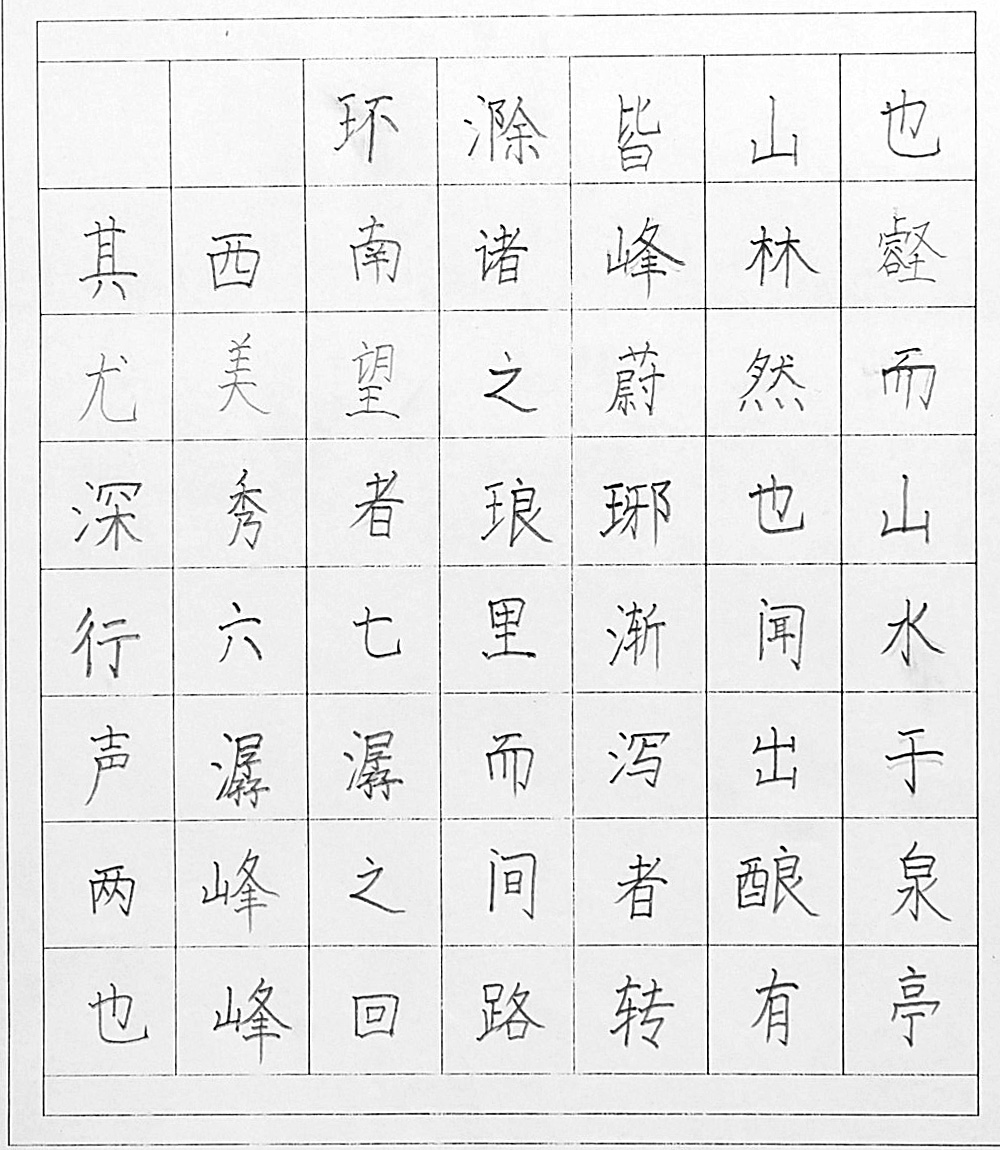 环滁皆山也
其西南诸峰林壑
尤美望之蔚然而
深秀者琅琊也山
行六七里渐闻水
声潺潺而泻出于
两峰之间者酿泉
也峰回路转有亭